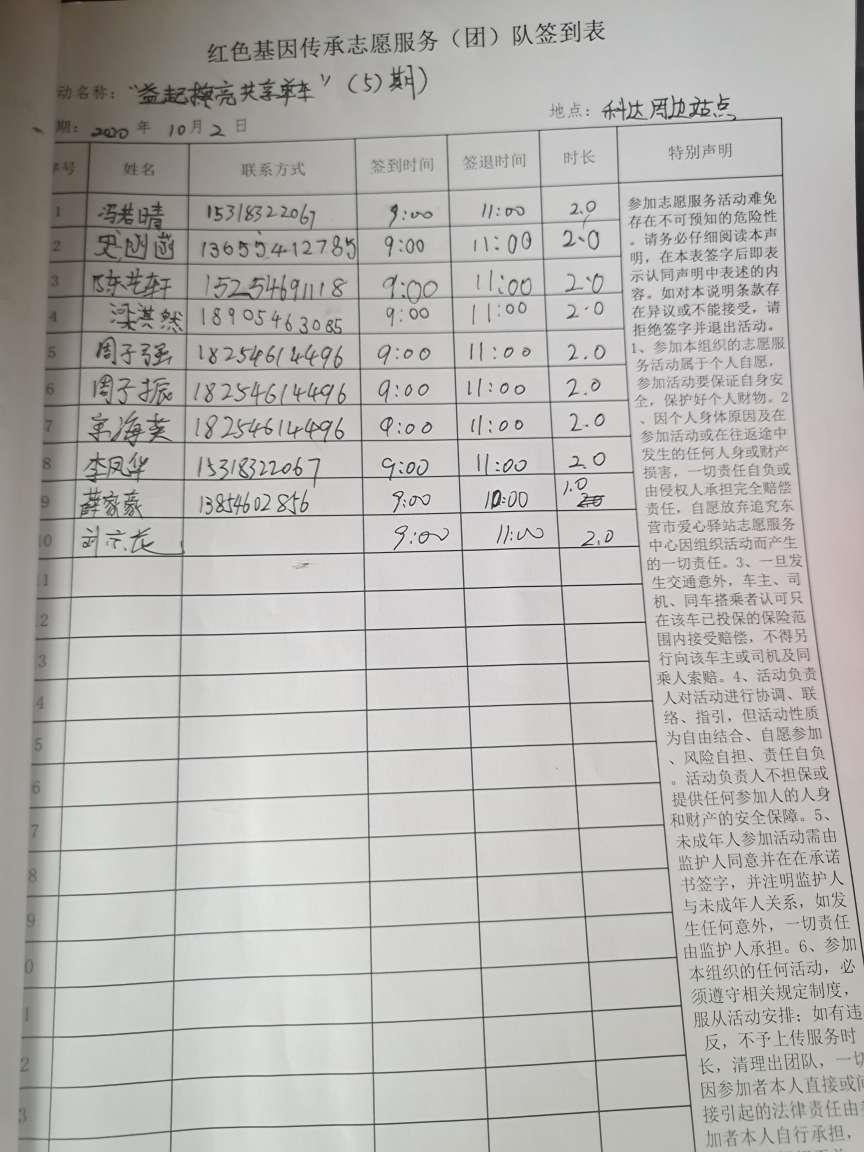 红色基因传承志愿服务（团）队签到表
动名称：“益起擦亮共享单车”（5）期）
期：2020 年 10 月 2 日 地点：科达周边站点
序号 姓名 联系方式 签到时间 签退时间 时长 特别声明
1 冯若晴 15318322067 9:00 11:00 2.0
2 13655412785 9:00 11:00 2.0
3 陈艺轩 15254691118 9:00 11:00 2.0
4 梁淇然 18905463085 9:00 11:00 2.0
5 周子强 18254614496 9:00 11:00 2.0
6 周子振 18254614496 9:00 11:00 2.0
7 宗海英 18254614496 9:00 11:00 2.0
8 李凤华 15318322067 9:00 11:00 2.0
9 薛家豪 13854602856 9:00 10:00 1.0
0 刘 9:00 11:00 2.0
1
2
3
4
5
6
7
8
9
0
1
2
3
参加志愿服务活动难免
存在不可预知的危险性
。请务必仔细阅读本声
明，在本表签字后即表
示认同声明中表述的内
容。如对本说明条款存
在异议或不能接受，请
拒绝签字并退出活动。
1、参加本组织的志愿服
务活动属于个人自愿，
参加活动要保证自身安
全，保护好个人财物。2
、因个人身体原因及在
参加活动或在往返途中
发生的任何人身或财产
损害，一切责任自负或
由侵权人承担完全赔偿
责任，自愿放弃追究东
营市爱心驿站志愿服务
中心因组织活动而产生
的一切责任。3、一旦发
生交通意外，车主、司
机、同车搭乘者认可只
在该车已投保的保险范
围内接受赔偿，不得另
行向该车主或司机及同
乘人索赔。4、活动负责
人对活动进行协调、联
络、指引，但活动性质
为自由结合、自愿参加
、风险自担、责任自负
。活动负责人不担保或
提供任何参加人的人身
和财产的安全保障。5、
未成年人参加活动需由
监护人同意并在在承诺
书签字，并注明监护人
与未成年人关系，如发
生任何意外，一切责任
由监护人承担。6、参加
本组织的任何活动，必
须遵守相关规定制度，
服从活动安排；如有违
反，不予上传服务时
长，清理出团队，一切
因参加者本人直接或间
接引起的法律责任由参
加者本人自行承担，